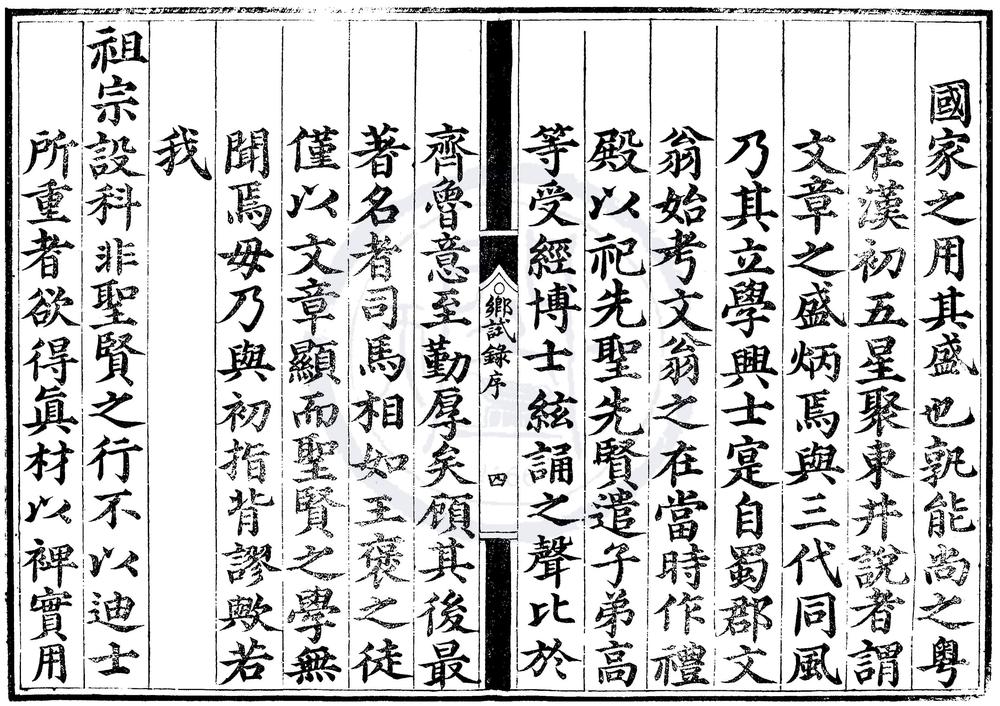 國家之用其盛也孰能尚之粤
在漢初五星聚東井說者謂
文章之盛炳焉與三代同風
乃其立學興士寔自蜀郡文
翁始考文翁之在當時作禮
殿以祀先聖先賢遣子弟高
等受經博士絃誦之聲比於
鄉試錄序
四
齊魯意至勤厚矣顧其後最
著名者司馬相如王褒之徒
僅以文章顯而聖賢之學無
聞焉毋乃與初指背謬歟若
我
祖宗設科非聖賢之行不以迪士
所重者欲得眞材以裨實用